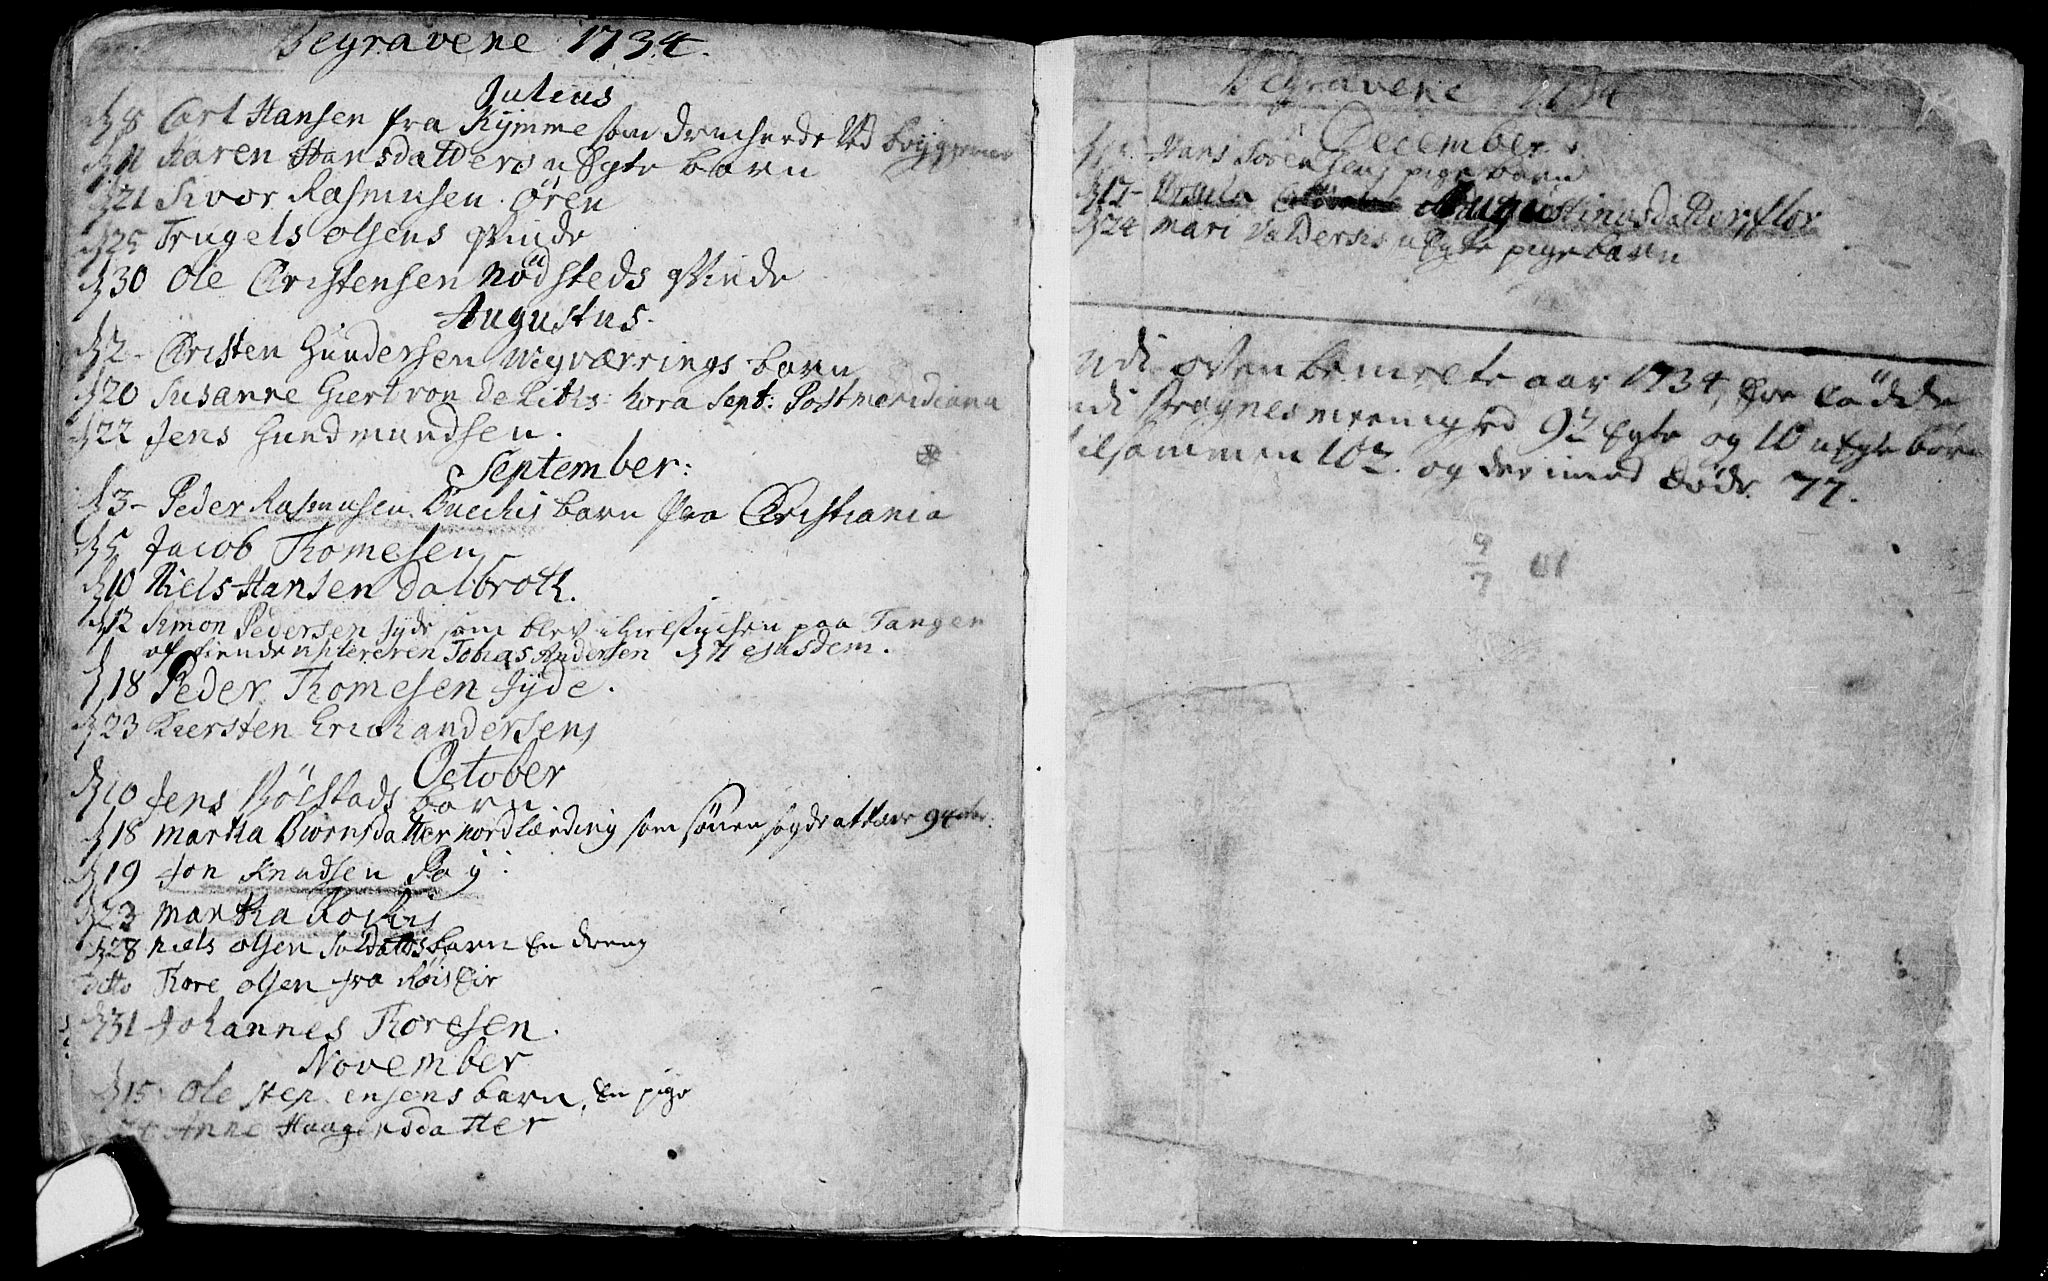 Begravene 1734.
Julius
d 8 Carl Hansen fra Rymme som druchnede ved bryggerne
d 11 Karen Hansdatters uEgte barn
d 21 Sivor Rasmusen Ören
d 25 Trugels Olsens qvinde
d 30 Ole Christensen Nödsteds qvinde
Augustus.
d 2 - Christen Gundersen barn
d 20 Susanne Giert von de hora Sept: Postmeridiana
d 22 Jens Gundmundsen.
September:
d 3 - Peder Rasmusen barn fra Christiania
d 5 Jacob Thomesen
d 10 Niels Hansen Dalbroth.
d 12 Simon Pedersen Jyde som blev ihielstuchen paa Tangen
af Tobias Andersen d 11 ejusdem.
d 18 Peder Thomesen Jyde.
d 23 Kiersten Erich andersens
October
d 10 Jens Rölstads barn
d 18 Martha Biörnsdatter Nordlænding som sönen sagde at være 94 aar.
d 19 Jon Knudsen Röy.
d 23 Martha
d 28 Niels Olsen Soldatts barn En dreng
ditto Thore Olsen fra
d 31 Johannes Thoresen.
November
d 15 Ole Stephensens barn, En pige
Anne Haagensdatter
Begravene 1734
December
Hans Sörensens pigebarn
d 17 - Ursula Augustinusdatter Flor
d 24 Mari Valdersis uEgte pigebarn
udi ovenbemelte aar 1734, ere födde
udi Bragnes meenighed 92 Egte og 10 uEgte börn
tilsammen 102. og derimod Döde 77.
9
7